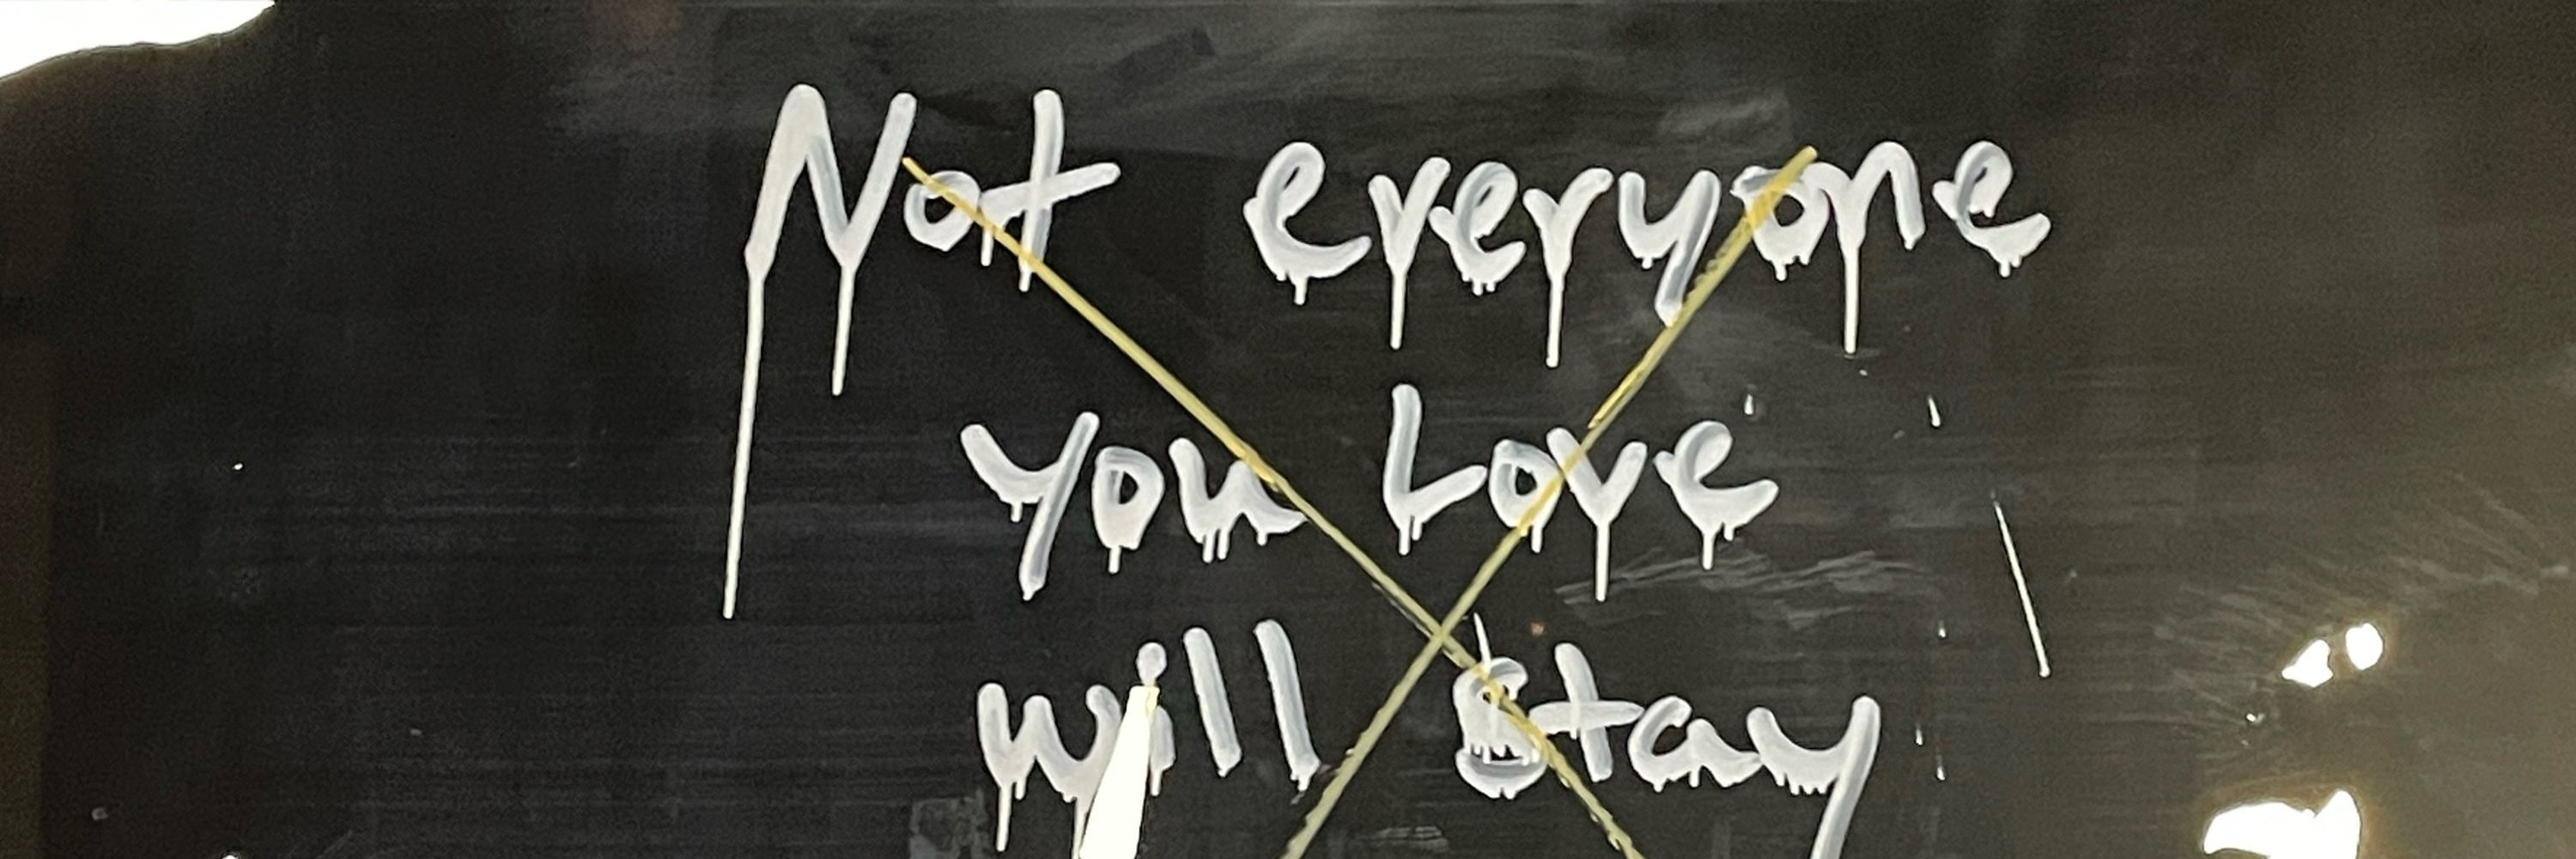 Not everyone
you Love
will stay